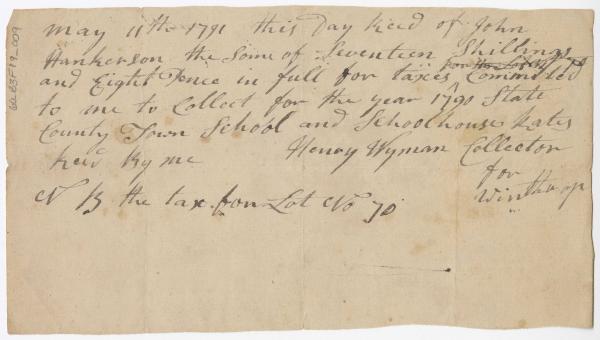 May 11th 1791 this Day Recd of John
Hankerson the Some of Seventeen Shillings
and Eight Pence in full for taxes Committed
to me to Collect for the year 1790 State
County Town School and Schoolhouse Rates
Recd By me Henry Wyman Collector
for
Winthrop
N B the tax for Lot No 70
62 E3F19_009